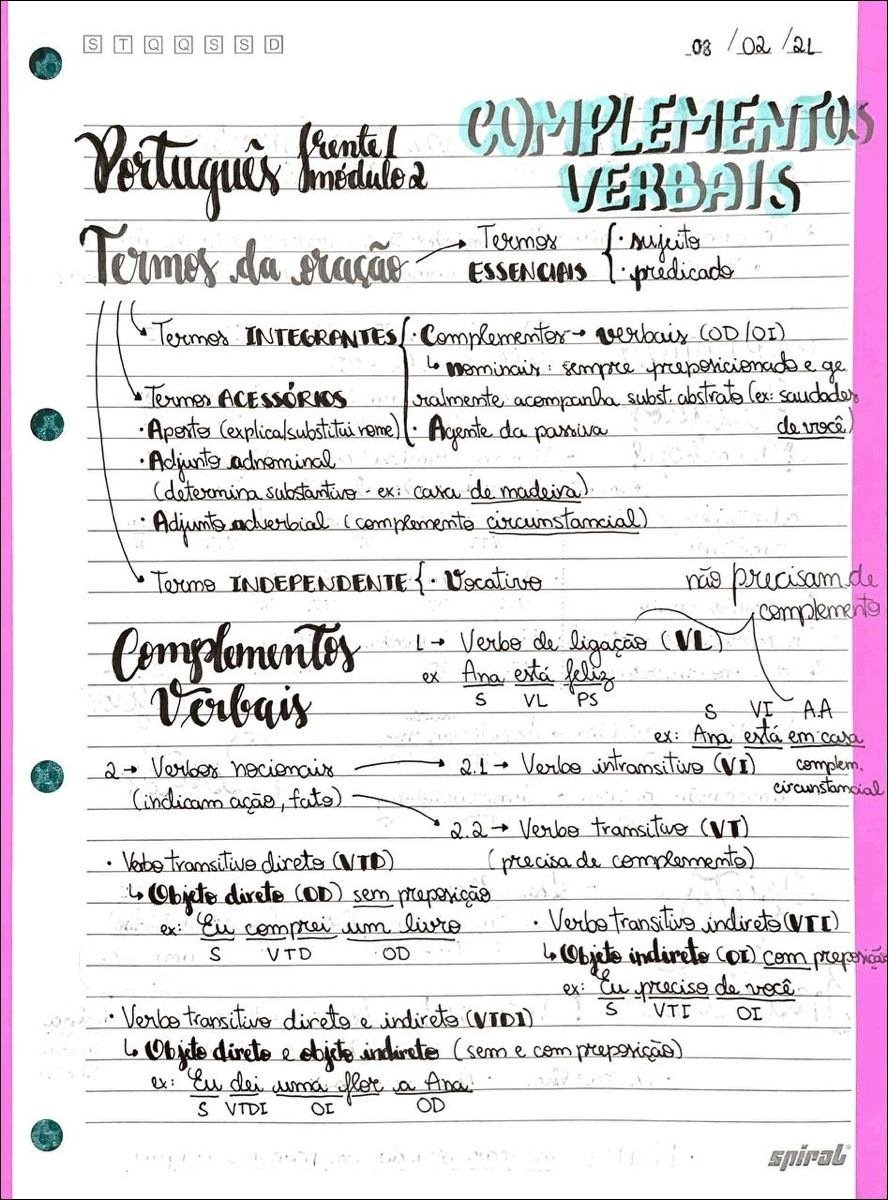 S T Q Q S S D
08 / 02 / 21
COMPLEMENTOS
VERBAIS
Português frente 1
módulo 2
Termos da oração → Termos ESSENCIAIS { · sujeito
· predicado
Termos INTEGRANTES { · Complementos → verbais (OD/OI)
↳ nominais: sempre preposicionado e ge
ralmente acompanha subst. abstrato (ex: saudades
de você)
· Agente da passiva
Termos ACESSÓRIOS
· Aposto (explica/substitui nome)
· Adjunto adnominal
(determina substantivo - ex: casa de madeira)
· Adjunto adverbial (complemento circunstancial)
Termo INDEPENDENTE { · Vocativo
não precisam de
complemento
Complementos
Verbais
1 → Verbo de ligação (VL)
ex Ana está feliz
S VL PS
S VI A.A
ex: Ana está em casa
complem.
circunstancial
2 → Verbos nocionais → 2.1 → Verbo intransitivo (VI)
(indicam ação, fato)
2.2 → Verbo transitivo (VT)
(precisa de complemento)
· Verbo transitivo direto (VTD)
↳ Objeto direto (OD) sem preposição
ex: Eu comprei um livro
S VTD OD
· Verbo transitivo indireto (VTI)
↳ Objeto indireto (OI) com preposição
ex: Eu preciso de você
S VTI OI
· Verbo transitivo direto e indireto (VTDI)
↳ Objeto direto e objeto indireto (sem e com preposição)
ex: Eu dei uma flor a Ana
S VTDI OI OD
spiral